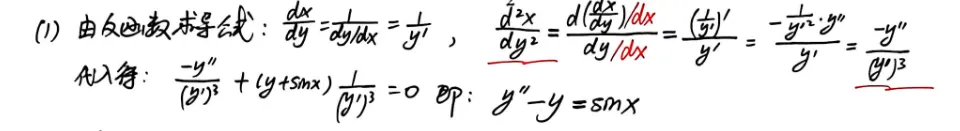 (1) 由反函数求导公式: dx/dy = 1/(dy/dx) = 1/y' , d²x/dy² = (d(dx/dy)/dx)/(dy/dx) = (1/y')'/y' = (-1/y'²·y'')/y' = -y''/(y')³
代入得: -y''/(y')³ + (y+sinx) 1/(y')³ = 0 即: y''-y=sinx